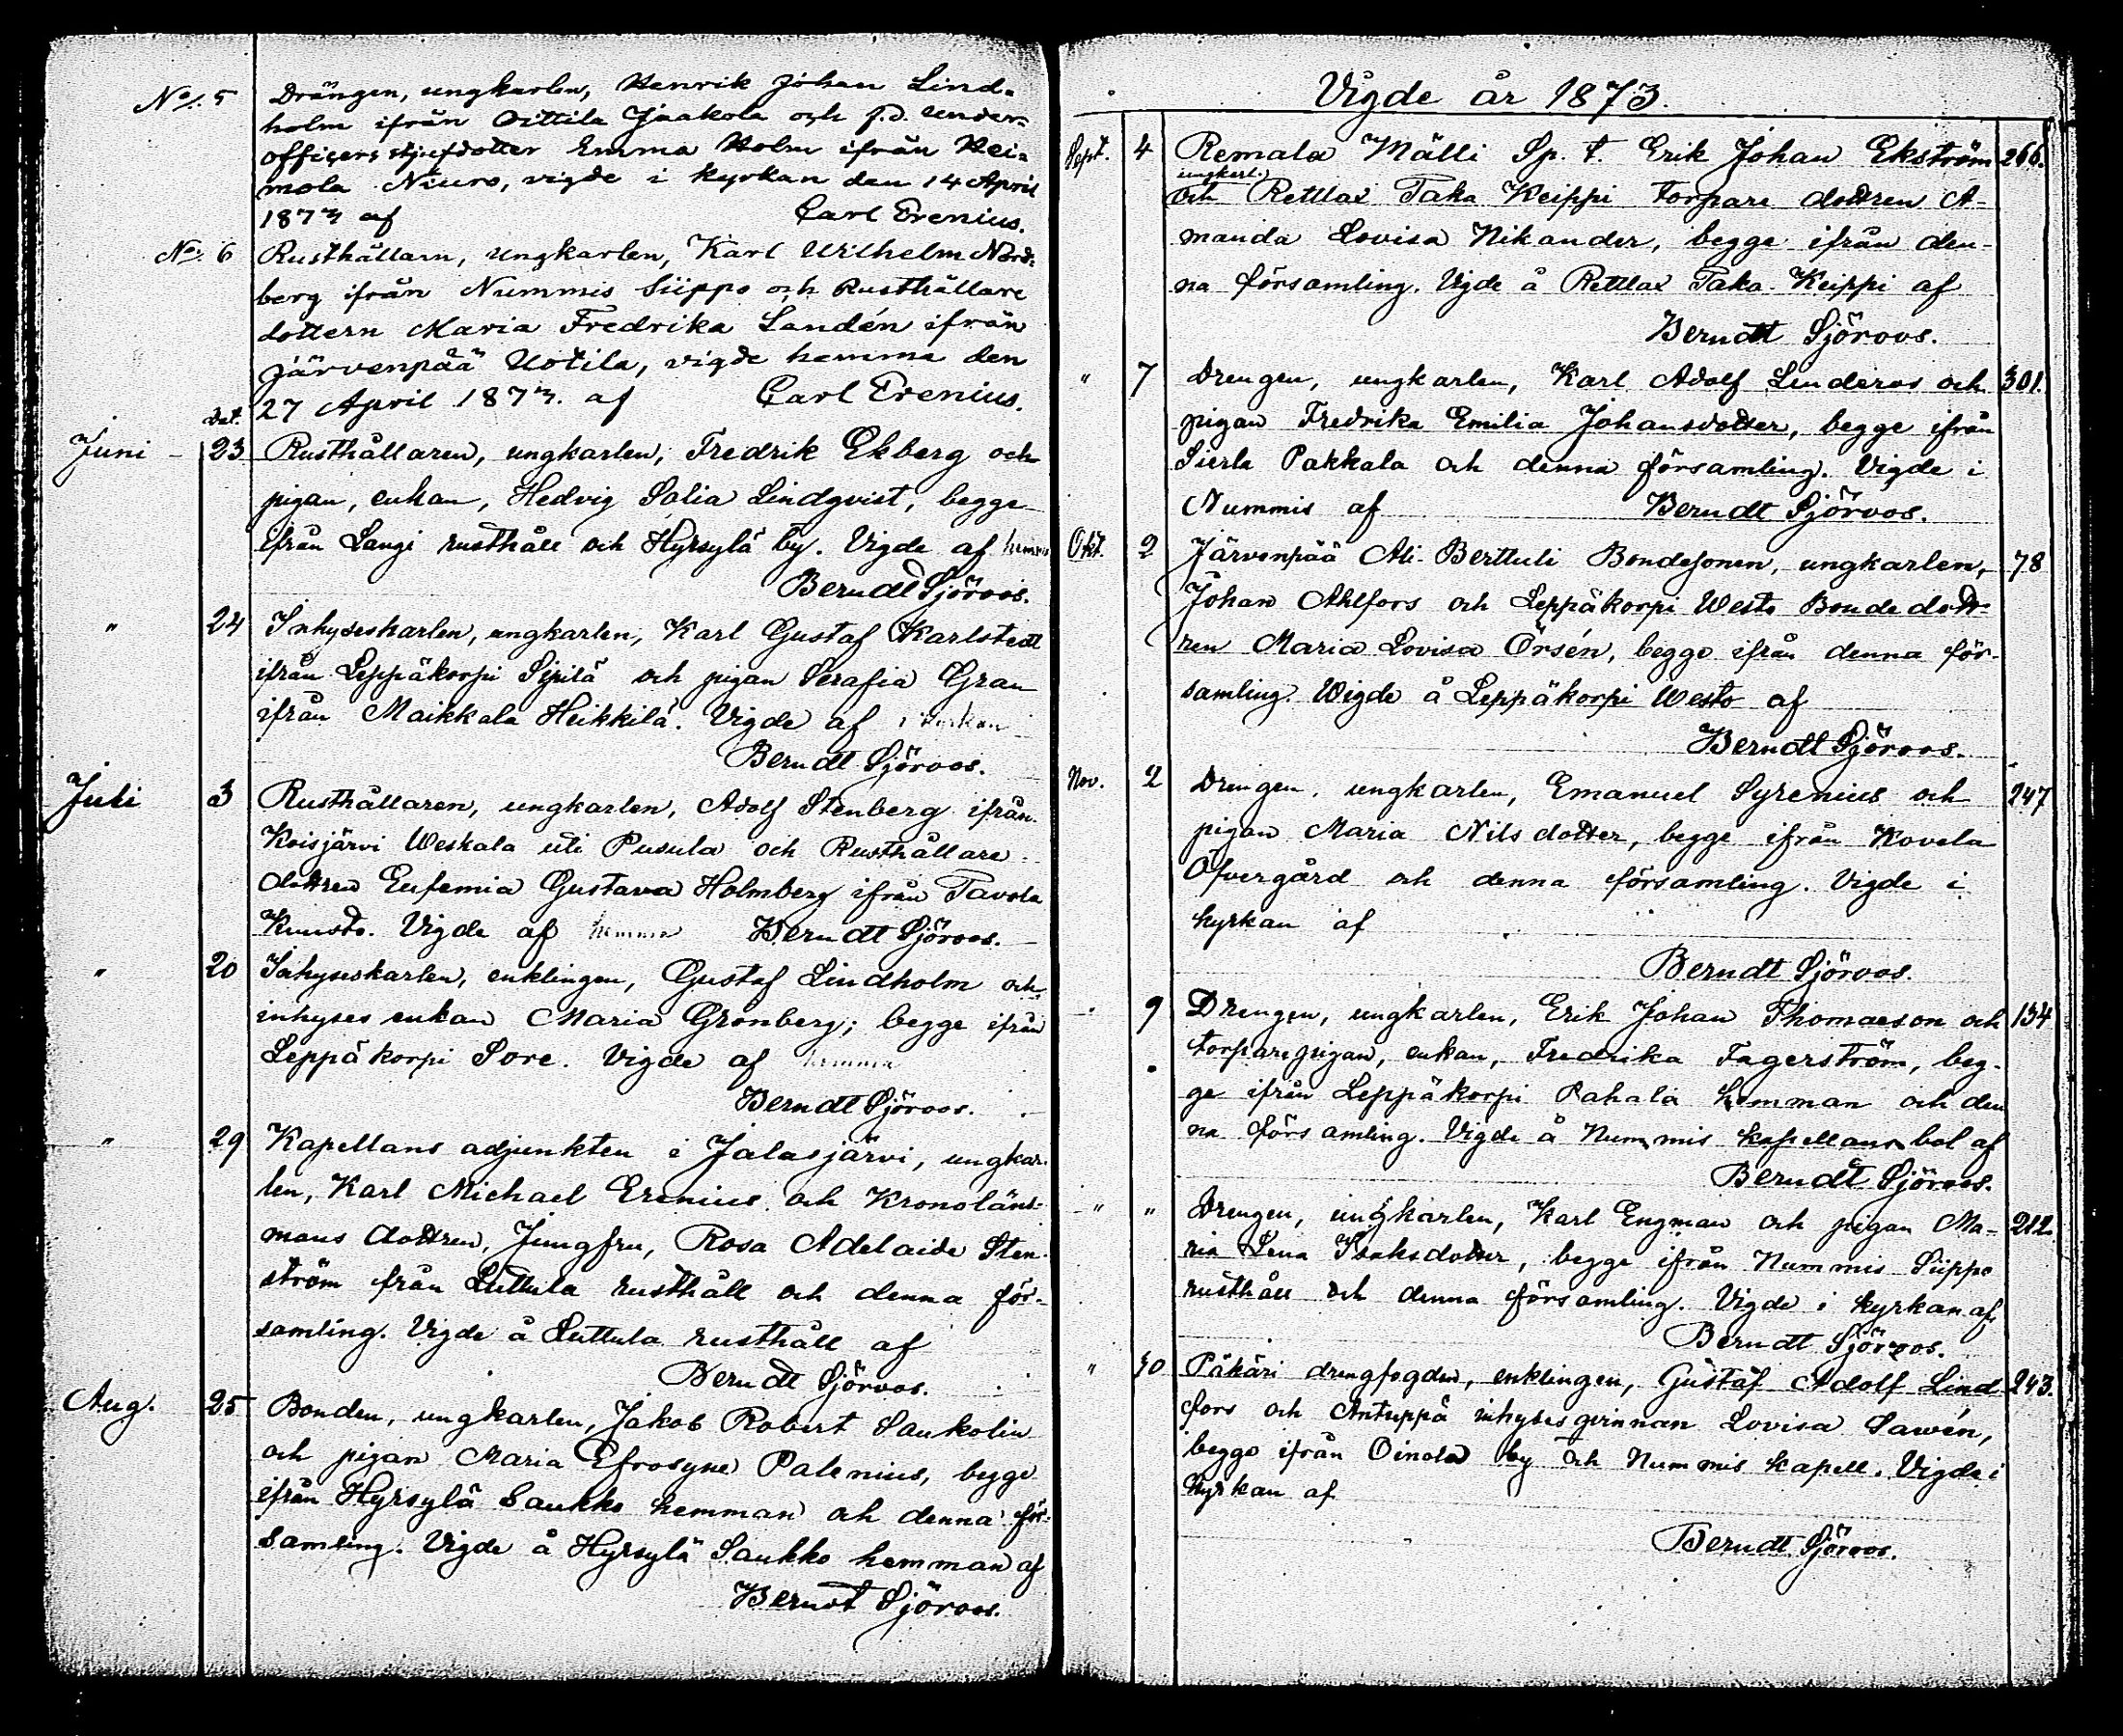 No. 5 Drängen, ungkarlen, Henrik Johan Lind-
holm ifrån Oittila Jaakola och f.d. under-
officers styfdotter Emma Holm ifrån Hei-
mola Niuro, vigde i kyrkan den 14 April
1873 af Carl Erenius.
No. 6 Rusthållarn, ungkarlen, Karl Wilhelm Nord-
berg ifrån Nummis Siippo och Rusthållare
dottern Maria Fredrika Landén ifrån
Järvenpää Uotila, vigde hemma den
27 April 1873. af Carl Erenius.
Dat.
Juni 23 Rusthållaren, ungkarlen, Fredrik Ekberg och
pigan, enkan, Hedvig Sofia Lindqvist, begge
ifrån Langi rusthåll och Hyrsylä by. Vigde af hemma
Berndt Sjöroos.
" 24 Inhyseskarlen, ungkarlen, Karl Gustaf Karlstedt
ifrån Leppäkorpi Sipilä och pigan Serafia Gran
ifrån Maikkala Heikkilä. Vigde af i kyrkan
Berndt Sjöroos.
Juli 3 Rusthållaren, ungkarlen, Adolf Stenberg ifrån
Koisjärvi Weskala uti Pusula och Rusthållare
dottren Eufemia Gustava Holmberg ifrån Tavola
Kunsto. Vigde af hemma Berndt Sjöroos.
" 20 Inhyseskarlen, enklingen, Gustaf Lindholm och
inhyses enkan Maria Grönberg; begge ifrån
Leppäkorpi Sore. Vigde af hemma
Berndt Sjöroos.
" 29 Kapellans adjunkten i Jalasjärvi, ungkar-
len, Karl Michael Erenius och Kronoläns-
mans dottren, Jungfru, Rosa Adelaide Sten-
ström från Luttula rusthåll och denna för-
samling. Vigde å Luttula rusthåll af
Berndt Sjöroos.
Aug. 25 Bonden, ungkarlen, Jakob Robert Saukolin
och pigan Maria Efrosyne Palenius, begge
ifrån Hyrsylä Saukko hemman och denna för-
samling. Vigde å Hyrsylä Saukko hemman af
Berndt Sjöroos.
Vigde år 1873.
Sept. 4 Remala Mälli Sp. t. Erik Johan Ekström 266.
ungkarl.
och Rettlax Taka Keippi torpare dottren A-
manda Lovisa Nikander, begge ifrån den-
na församling. Vigde å Rettlax Taka-Keippi af
Berndt Sjöroos.
" 7 Drengen, ungkarlen, Karl Adolf Linderos och 301.
pigan Fredrika Emilia Johansdotter, begge ifrån
Sierla Pakkala och denna församling. Vigde i
Nummis af Berndt Sjöroos.
Okt. 2 Järvenpää Ali-Berttuli Bondesonen, ungkarlen, 78
Johan Ahlfors och Leppäkorpi Westo Bondedott-
ren Maria Lovisa Örsén, begge ifrån denna för-
samling. Wigde å Leppäkorpi Westo af
Berndt Sjöroos.
Nov. 2 Drengen, ungkarlen, Emanuel Syrenius och 247
pigan Maria Nilsdotter, begge ifrån Kovela
Öfvergård och denna församling. Vigde i
kyrkan af
Berndt Sjöroos.
" 9 Drengen, ungkarlen, Erik Johan Thomaeson och 134
torparepigan, enkan, Fredrika Fagerström, beg-
ge ifrån Leppäkorpi Pahala hemman och den
na församling. Vigde å Nummis kapellansbol af
Berndt Sjöroos.
" " Drengen, ungkarlen, Karl Engman och pigan Ma- 212
ria Lena Isaksdotter, begge ifrån Nummis Siippo
rusthåll och denna församling. Vigde i kyrkan af
Berndt Sjöroos.
" 30 Päkäri drengfogden, enklingen, Gustaf Adolf Lind 243.
fors och Antuppä inhyses qvinnan Lovisa Sawén,
begge ifrån Oinola by och Nummis kapell. Vigde i
kyrkan af
Berndt Sjöroos.